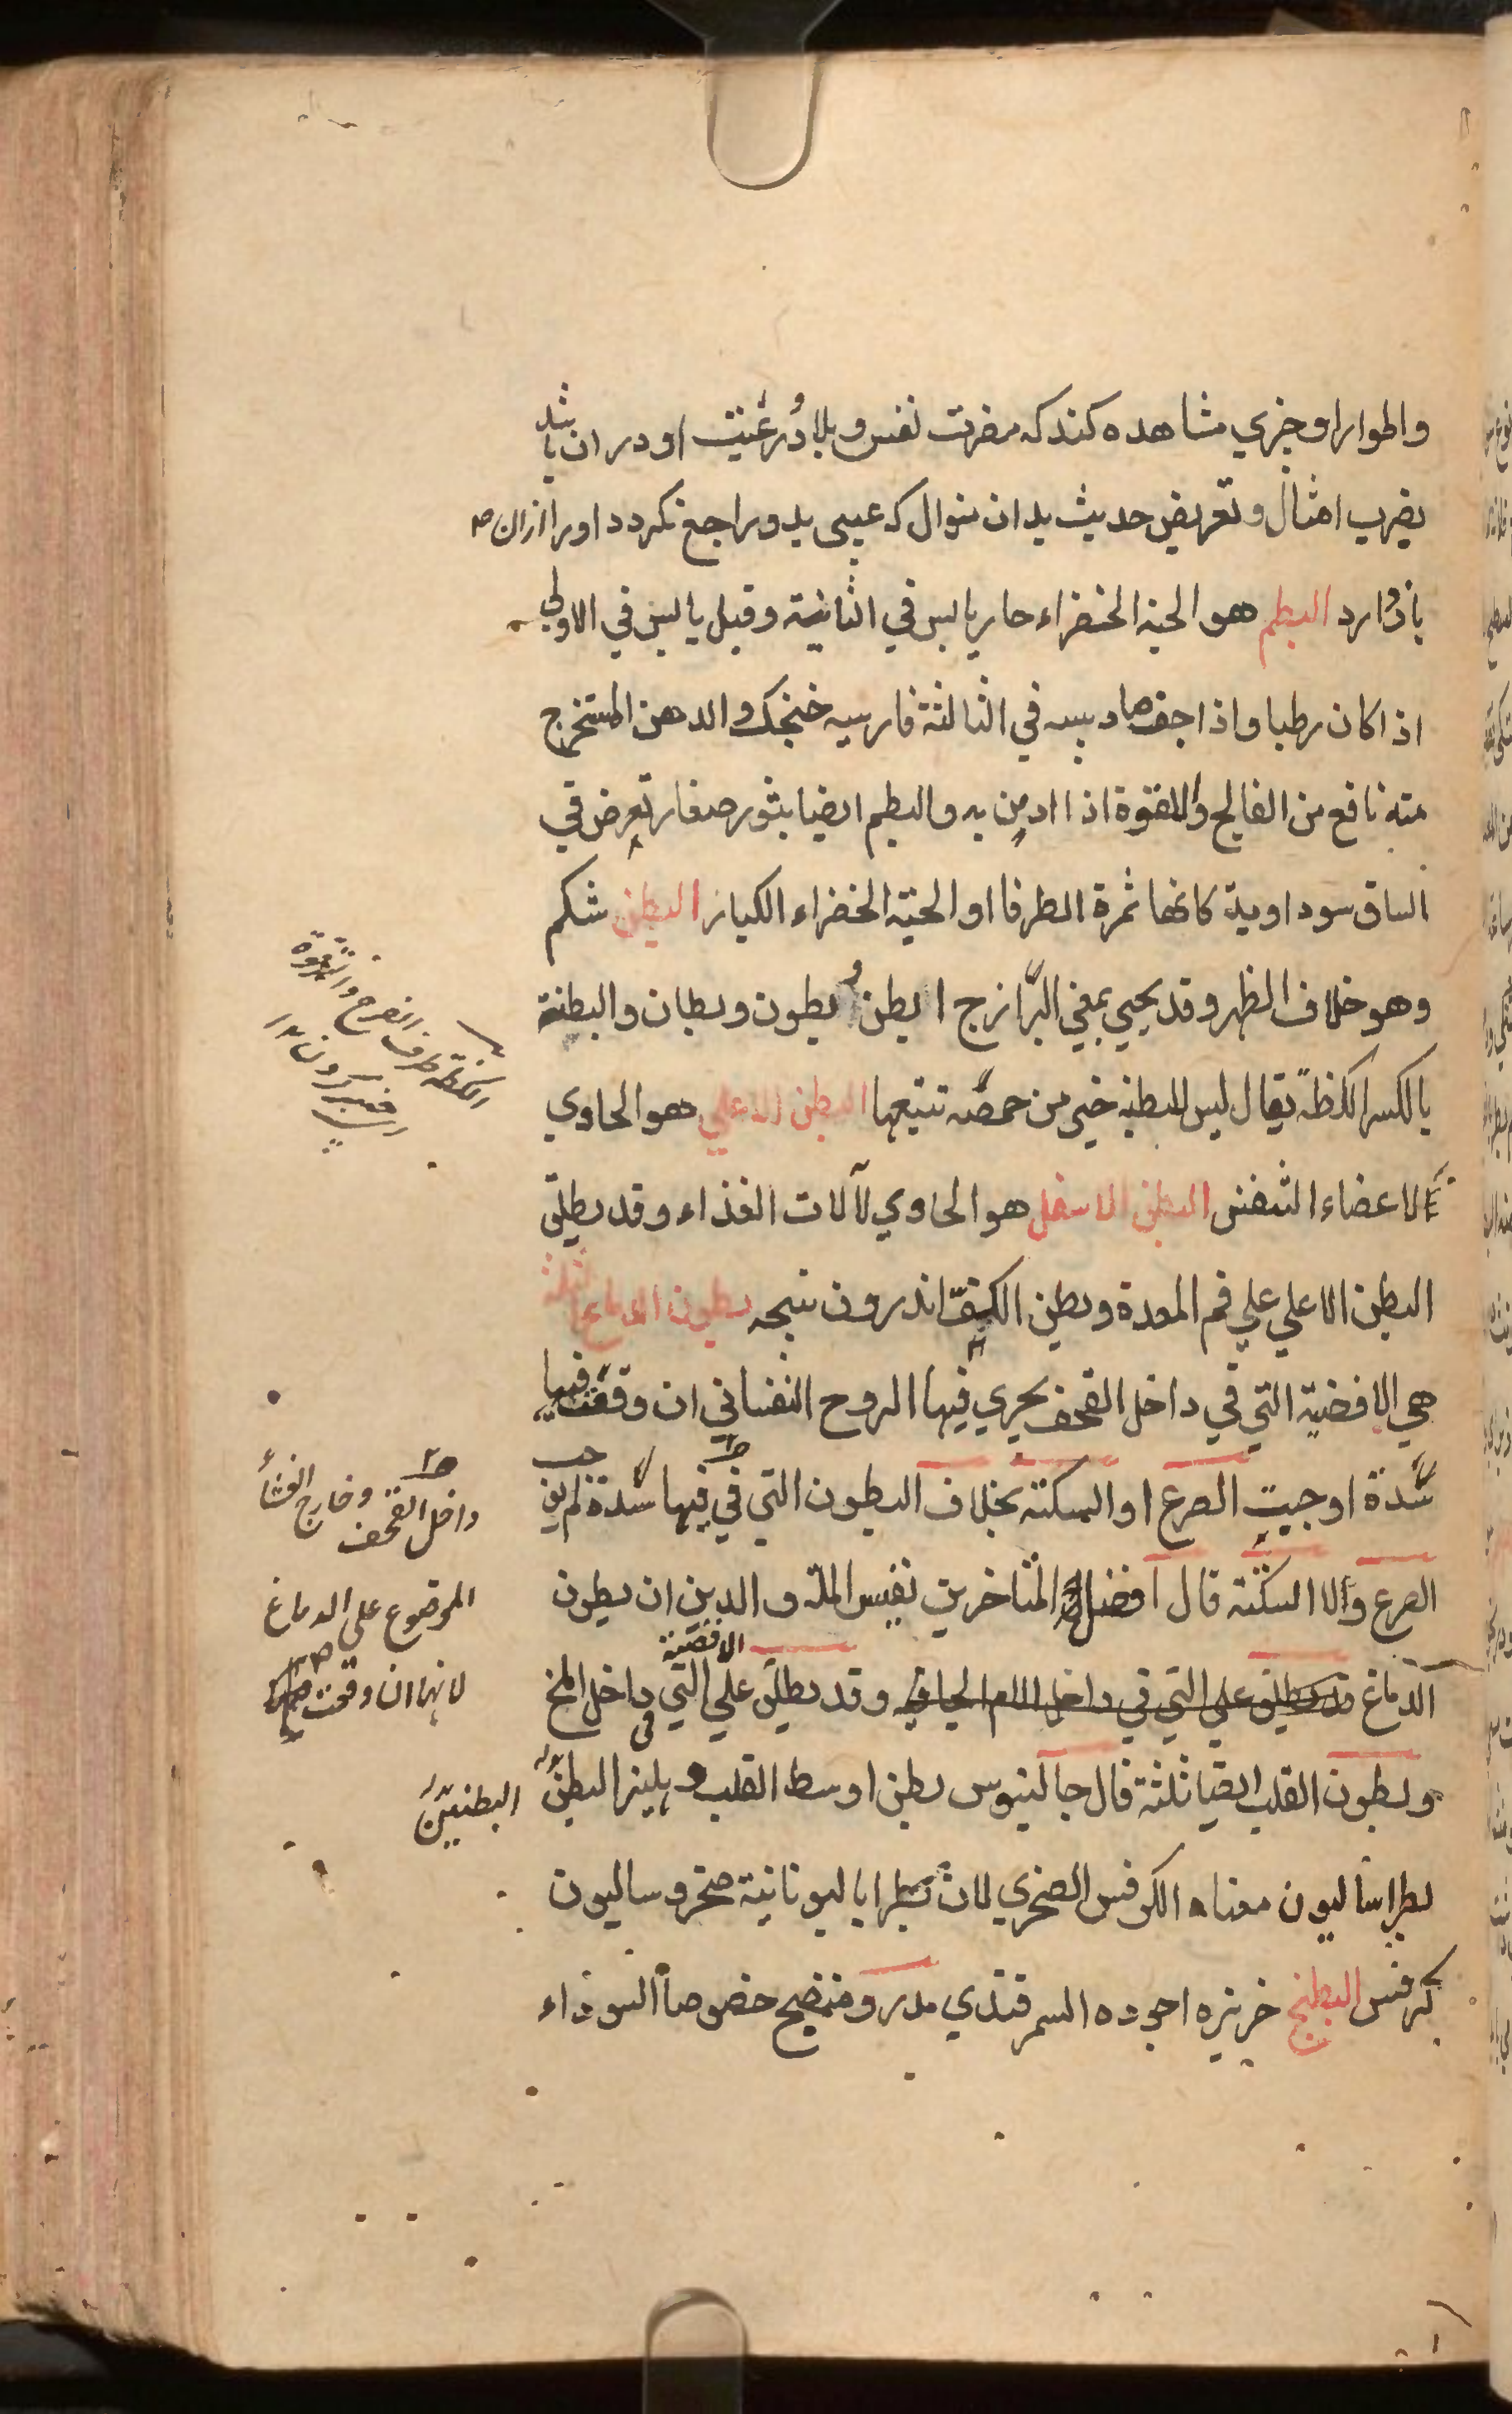 واطوار او چیزی مشاهده کند که مضرت نفس و بلادُرعُنیت او در ان باشد
بضرب امثال و تعریض حدیث بدان منوال که عیبی بدو راجع نکردد او را ازان
باز دارد البطم هو الحبة الخضراء حار یابس في الثانیة وقیل یابس في الاولي
اذا کان رطبا واذا جف صار یبسه في الثالثة فارسیه خنجک والدهن المتخرج
منه نافع من الفالج واللقوة اذا ادهن به والبطم ایضا بثور صغار تعرض في
الساق سوداویة کانها ثمرة الطرفا او الحبة الخضراء الکبار البطن شکم
وهو خلاف الظهر وقد یجیي بمعني البراز ج ابطن وبطون وبطنان والبطنة
بالکسر الکظة یقال لیس للبطنة خیر من خمصة تتبعها البطن الاعلي هو الحاوي
لاعضاء التنفس البطن الاسفل هو الحاوي لآلات الغذاء وقد یطلق
البطن الاعلي علي فم المعدة وبطن الکف اندرون پنجه بطون الدماغ ثلثة
هي الافضیة التي في داخل القحف یجري فیها الروح النفساني ان وقعت فیها
سدة اوجبت الصرع او السکتة بخلاف البطون التي في فیها سدة لم یوجب
الصرع ولا السکتة قال افضل المتاخرین نفیس الملة والدین ان بطون
الدماغ قد یطلق علي التي في داخل الام الجافیة وقد یطلق علي الافضیة التي في داخل المخ
وبطون القلب ایضا ثلثة قال جالینوس بطن اوسط القلب دهلیز البطن
بطراسالیون معناه الکرفس الصخري لان بطرا بالیونانیة صخر وسالیون
کرفس البطیخ خربزه اجوده السمرقندي مدر ومنضج خصوصاً السوداء
داخل القحف وخارج الغشاء
الموضوع علی الدماغ
لانها ان وقعت
البطنین